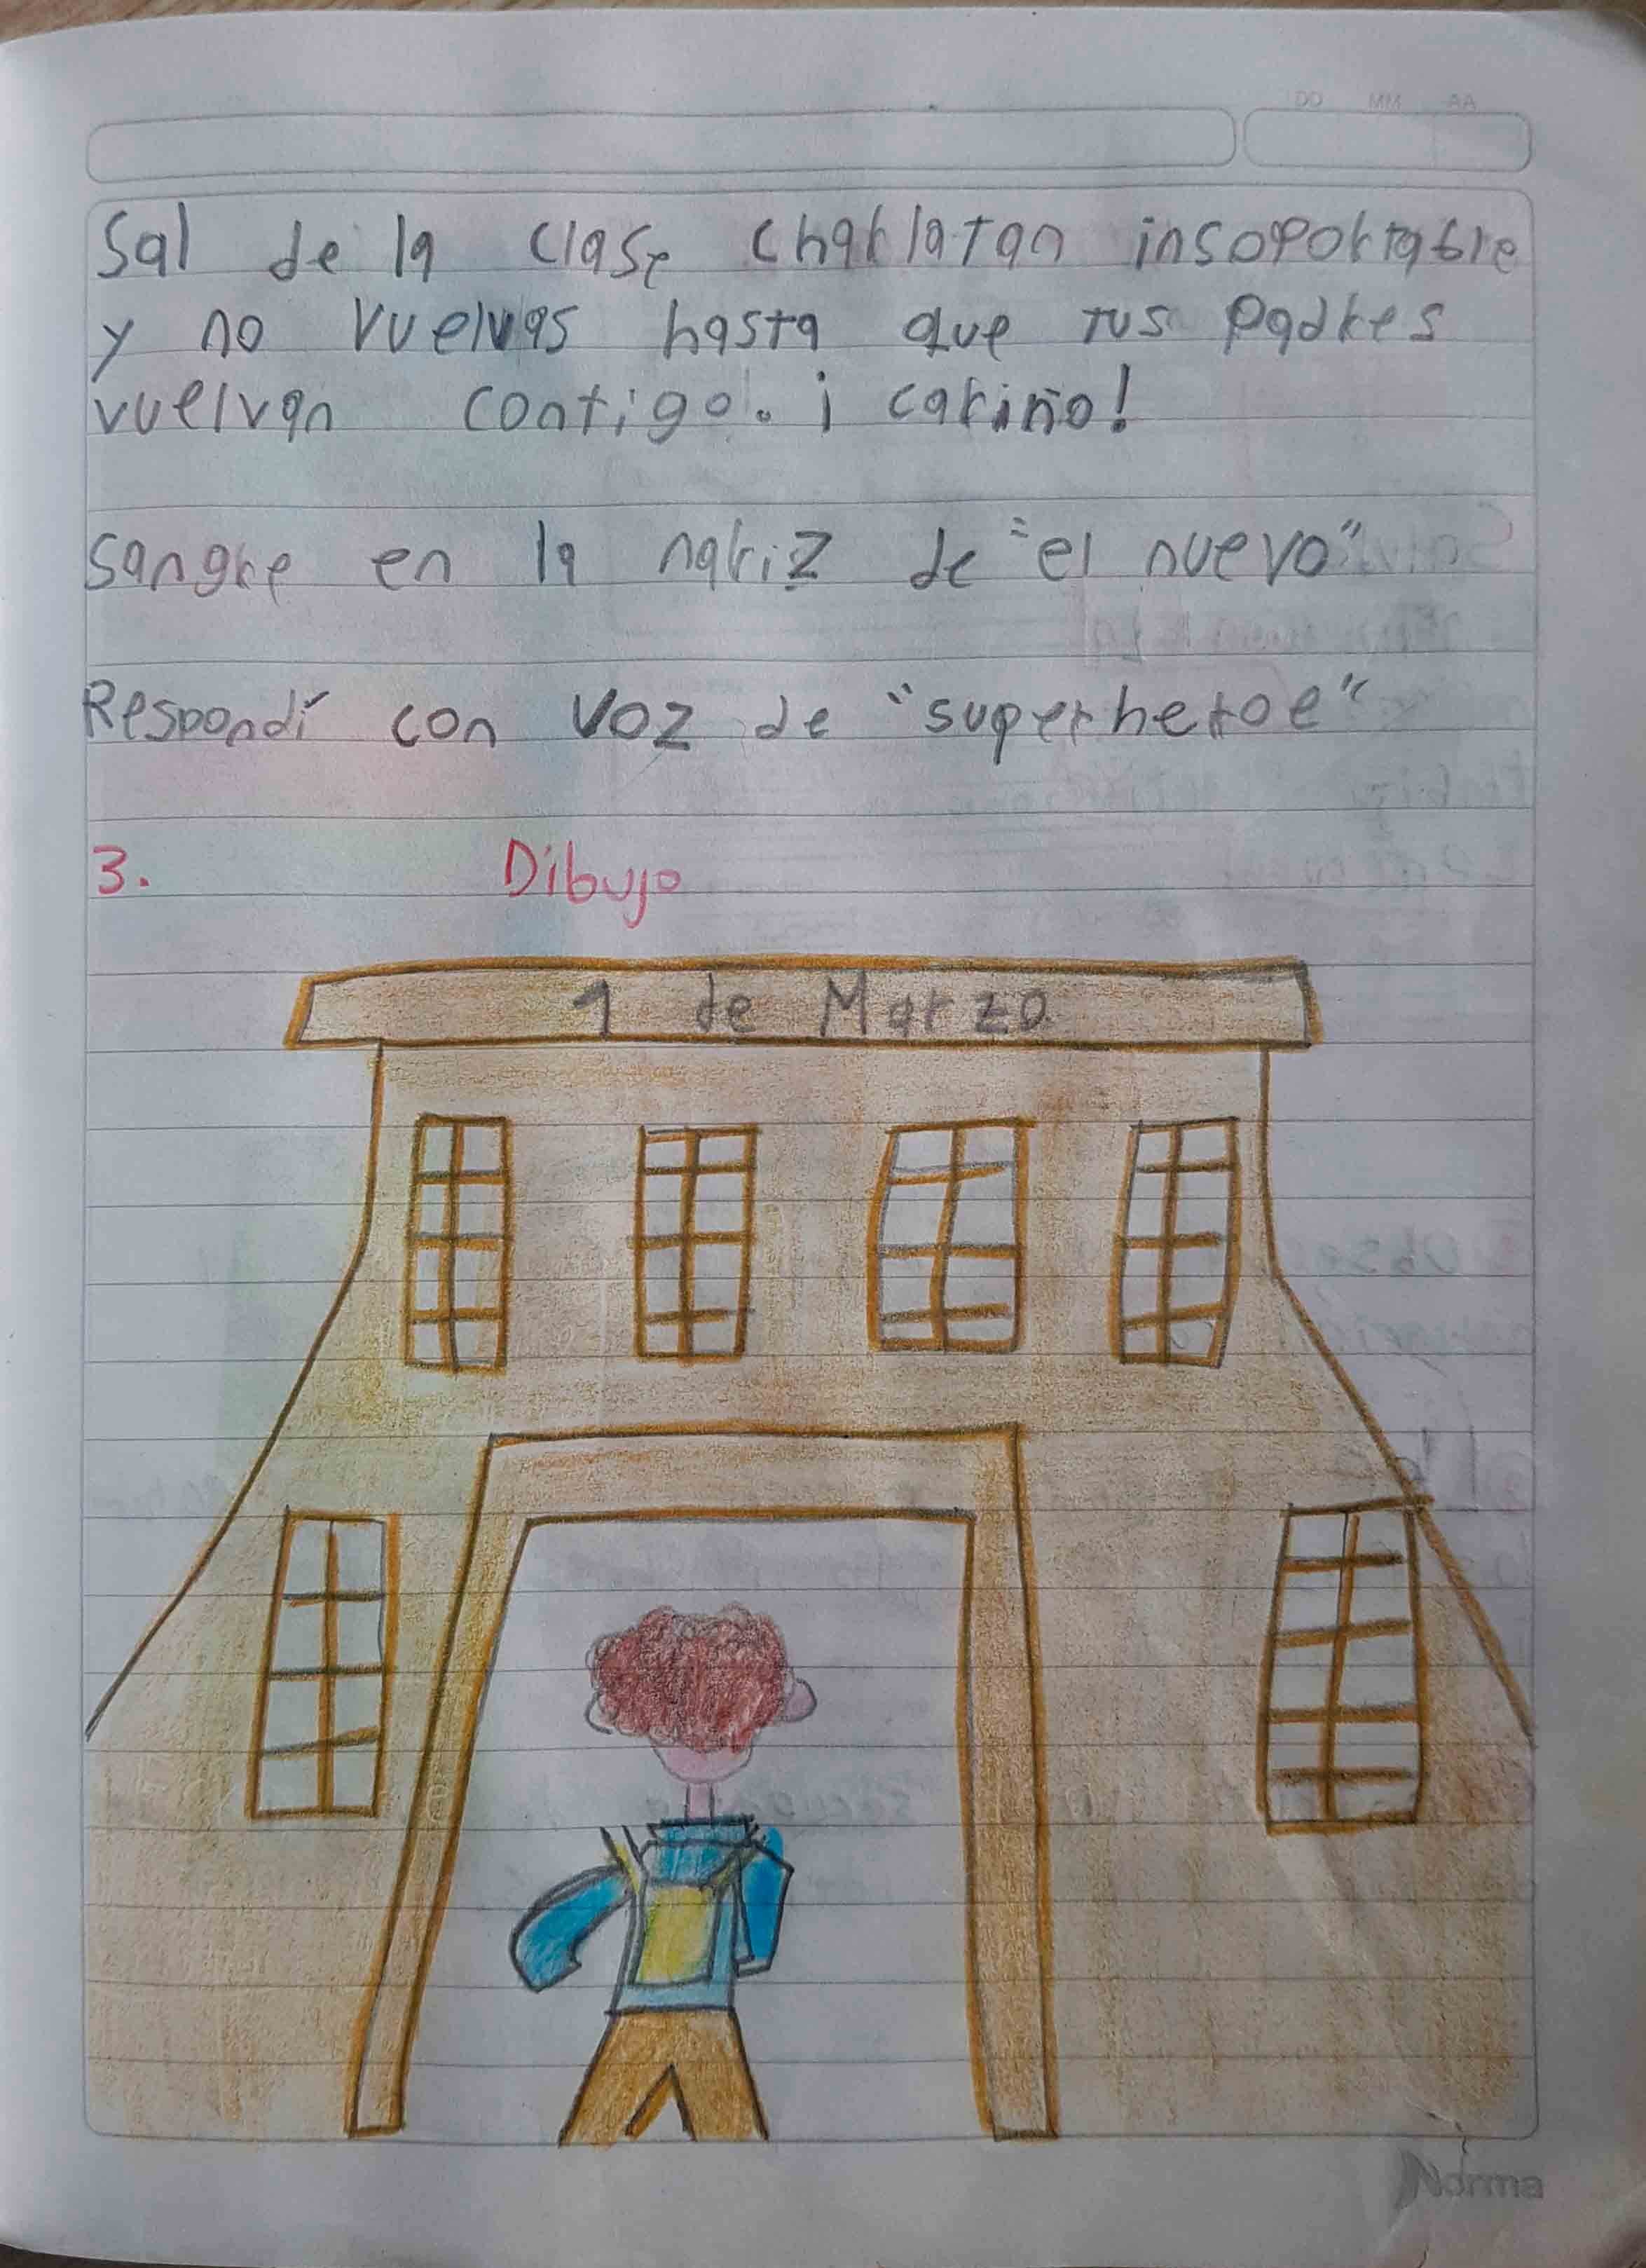 DD MM AA
Sal de la clase charlatan insoportable
y no vuelvas hasta que tus padres
vuelvan contigo. ¡ cariño!
Sangre en la nariz de "el nuevo"
Respondí con voz de "superheroe"
3. Dibujo
1 de Marzo
Norma